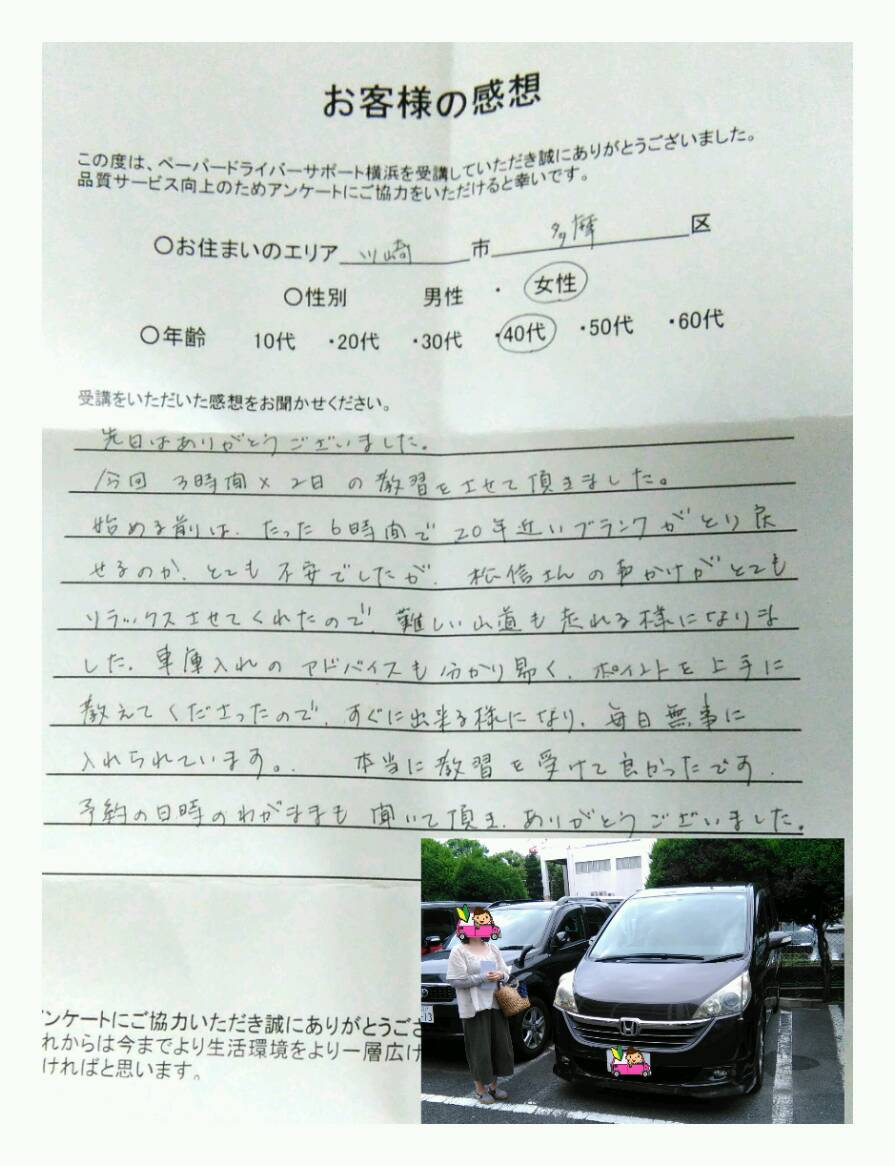 お客様の感想
この度は、ペーパードライバーサポート横浜を受講していただき誠にありがとうございました。
品質サービス向上のためアンケートにご協力をいただけると幸いです。
〇お住まいのエリア 川崎 市 多摩 区
〇性別 男性 ・ 女性
〇年齢 10代 ・20代 ・30代 ・40代 ・50代 ・60代
受講をいただいた感想をお聞かせください。
先日はありがとうございました。
今回 3時間×2日の教習をさせて頂きました。
始める前は、たった6時間で20年近いブランクがとり戻
せるのか、とても不安でしたが、松信さんの声かけがとても
リラックスさせてくれたので、難しい山道も走れる様になりま
した。車庫入れのアドバイスも分かり易く、ポイントを上手に
教えてくださったので、すぐに出来る様になり、毎日無事に
入れられています。. 本当に教習を受けて良かったです.
予約の日時のわがままも聞いて頂き、ありがとうございました。
アンケートにご協力いただき誠にありがとうござ
れからは今までより生活環境をより一層広げ
ければと思います。
-13